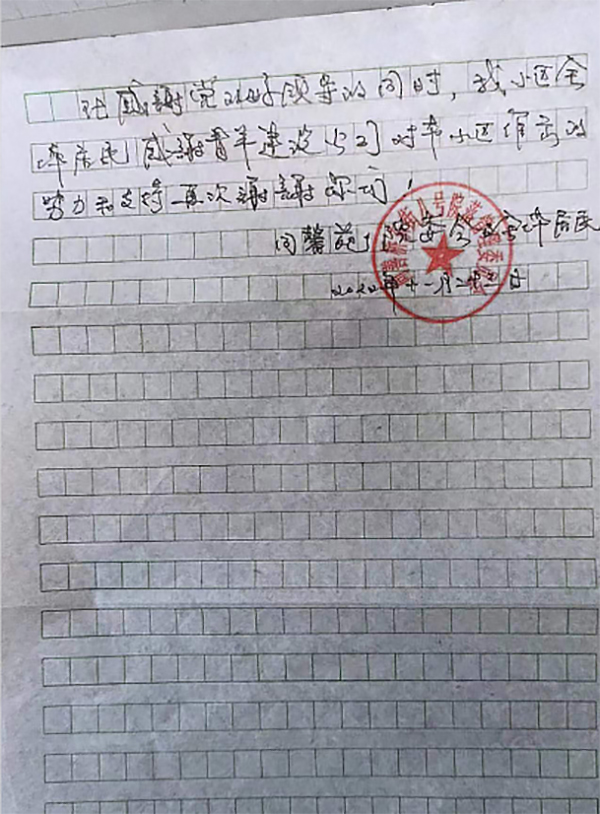 在感谢党的好领导的同时，我小区全
体居民感谢青羊建设公司对本小区作出的
努力和支持 再次谢谢你们！
同馨苑 院委会 全体居民
2022年十一月二十二日